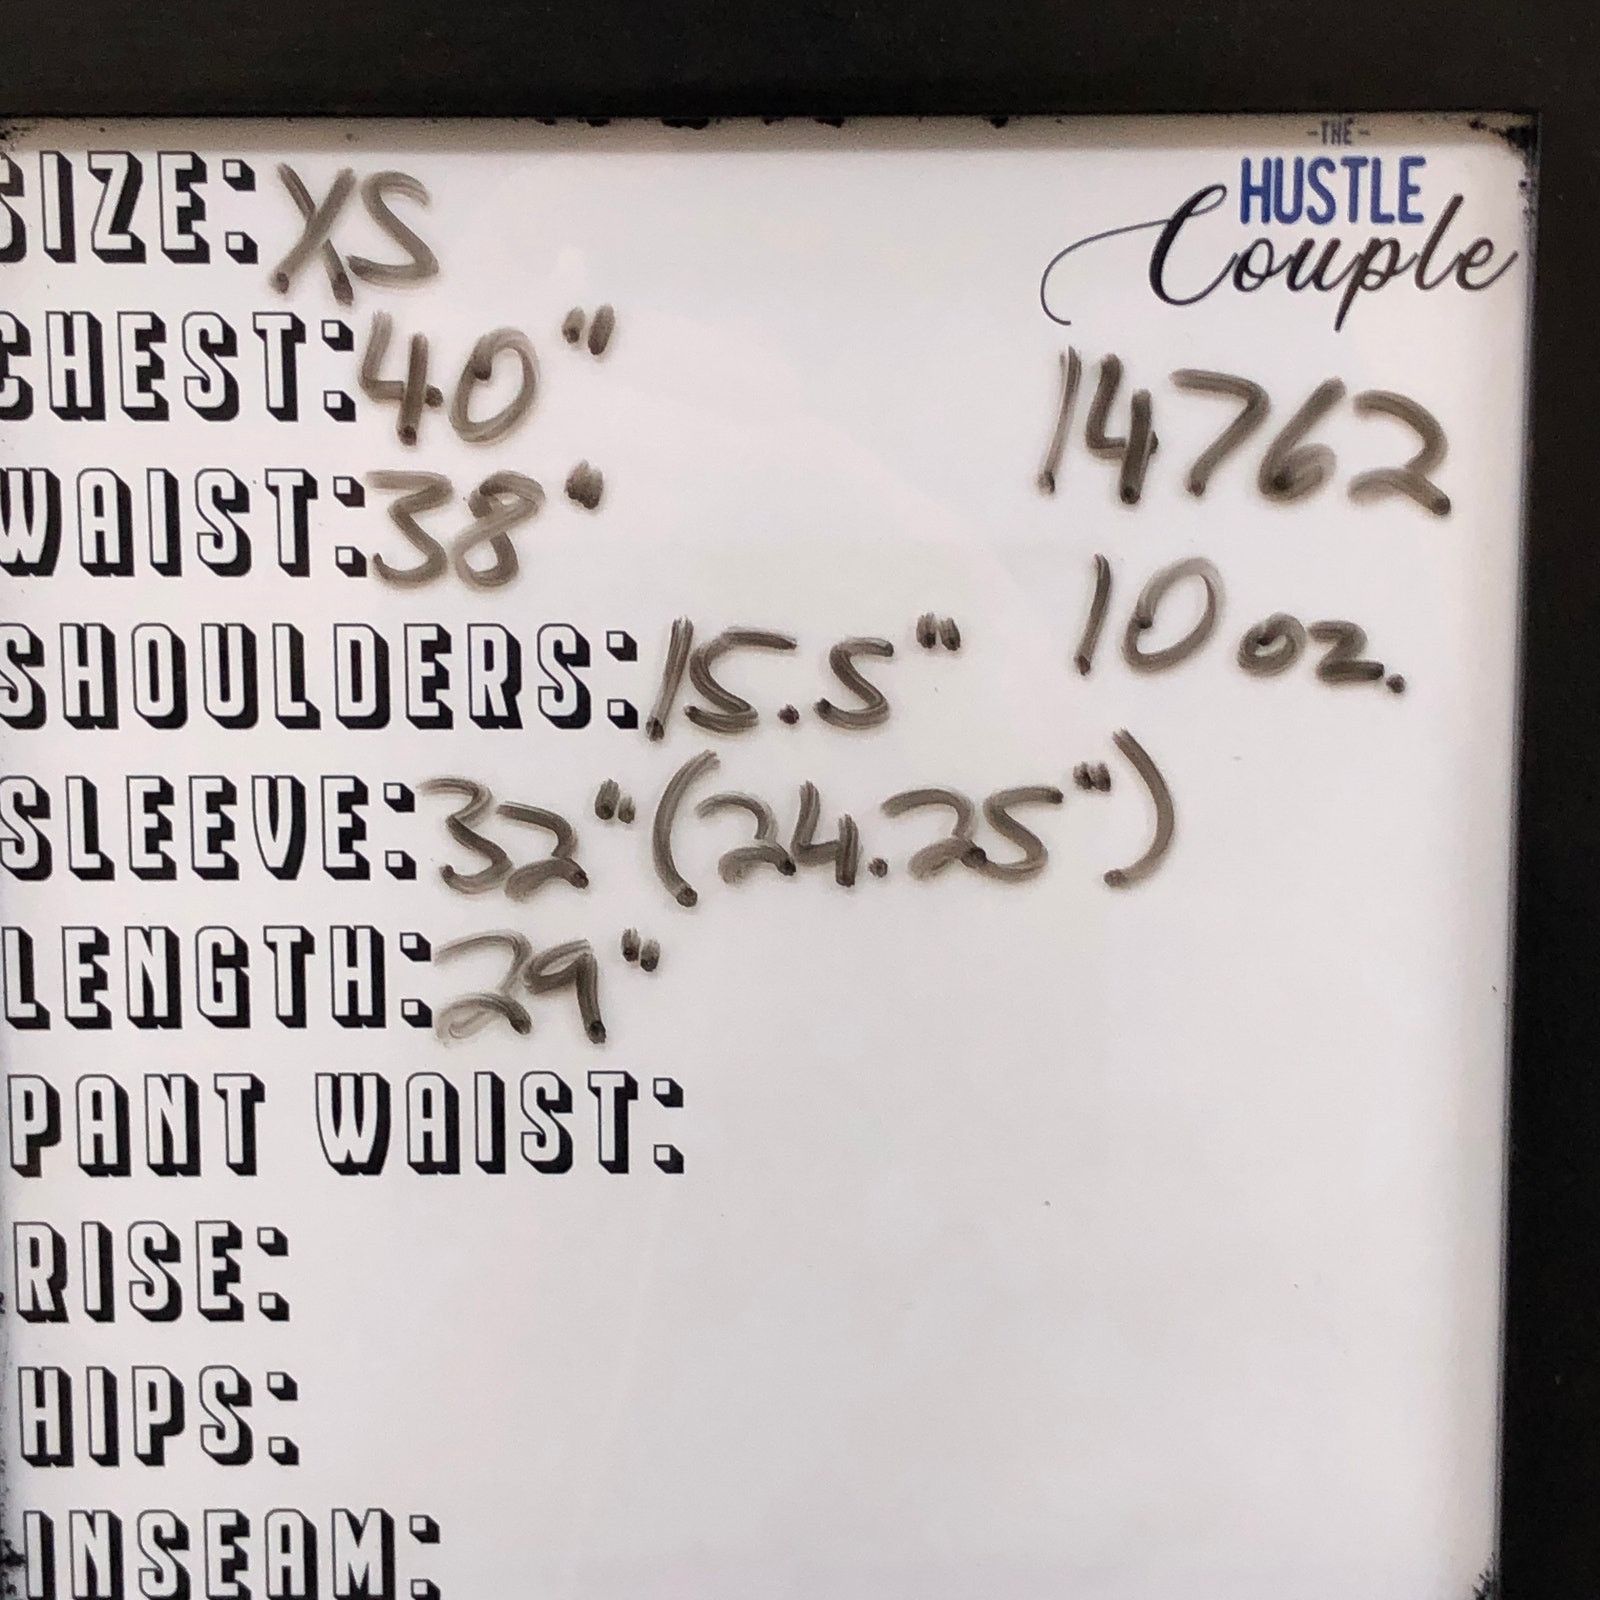 -THE-
HUSTLE
Couple
SIZE: XS
CHEST: 40"
14762
WAIST: 38"
10 oz.
SHOULDERS: 15.5"
SLEEVE: 32" (24.25")
LENGTH: 29"
PANT WAIST:
RISE:
HIPS:
INSEAM: